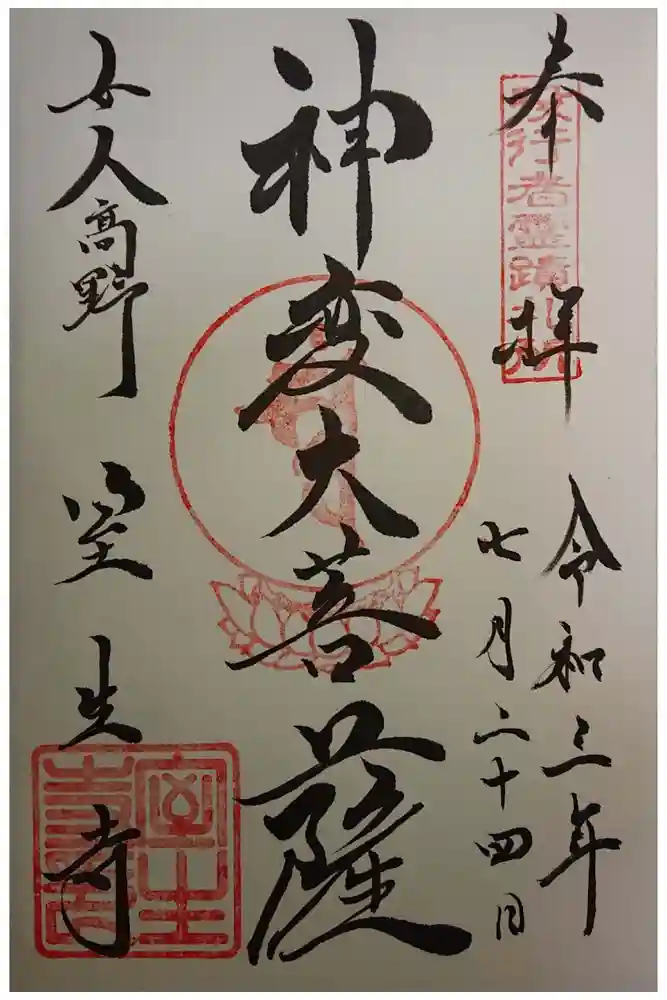 奉拝
役行者霊蹟札所
令和三年
七月二十四日
神変大菩薩
女人高野
室生寺